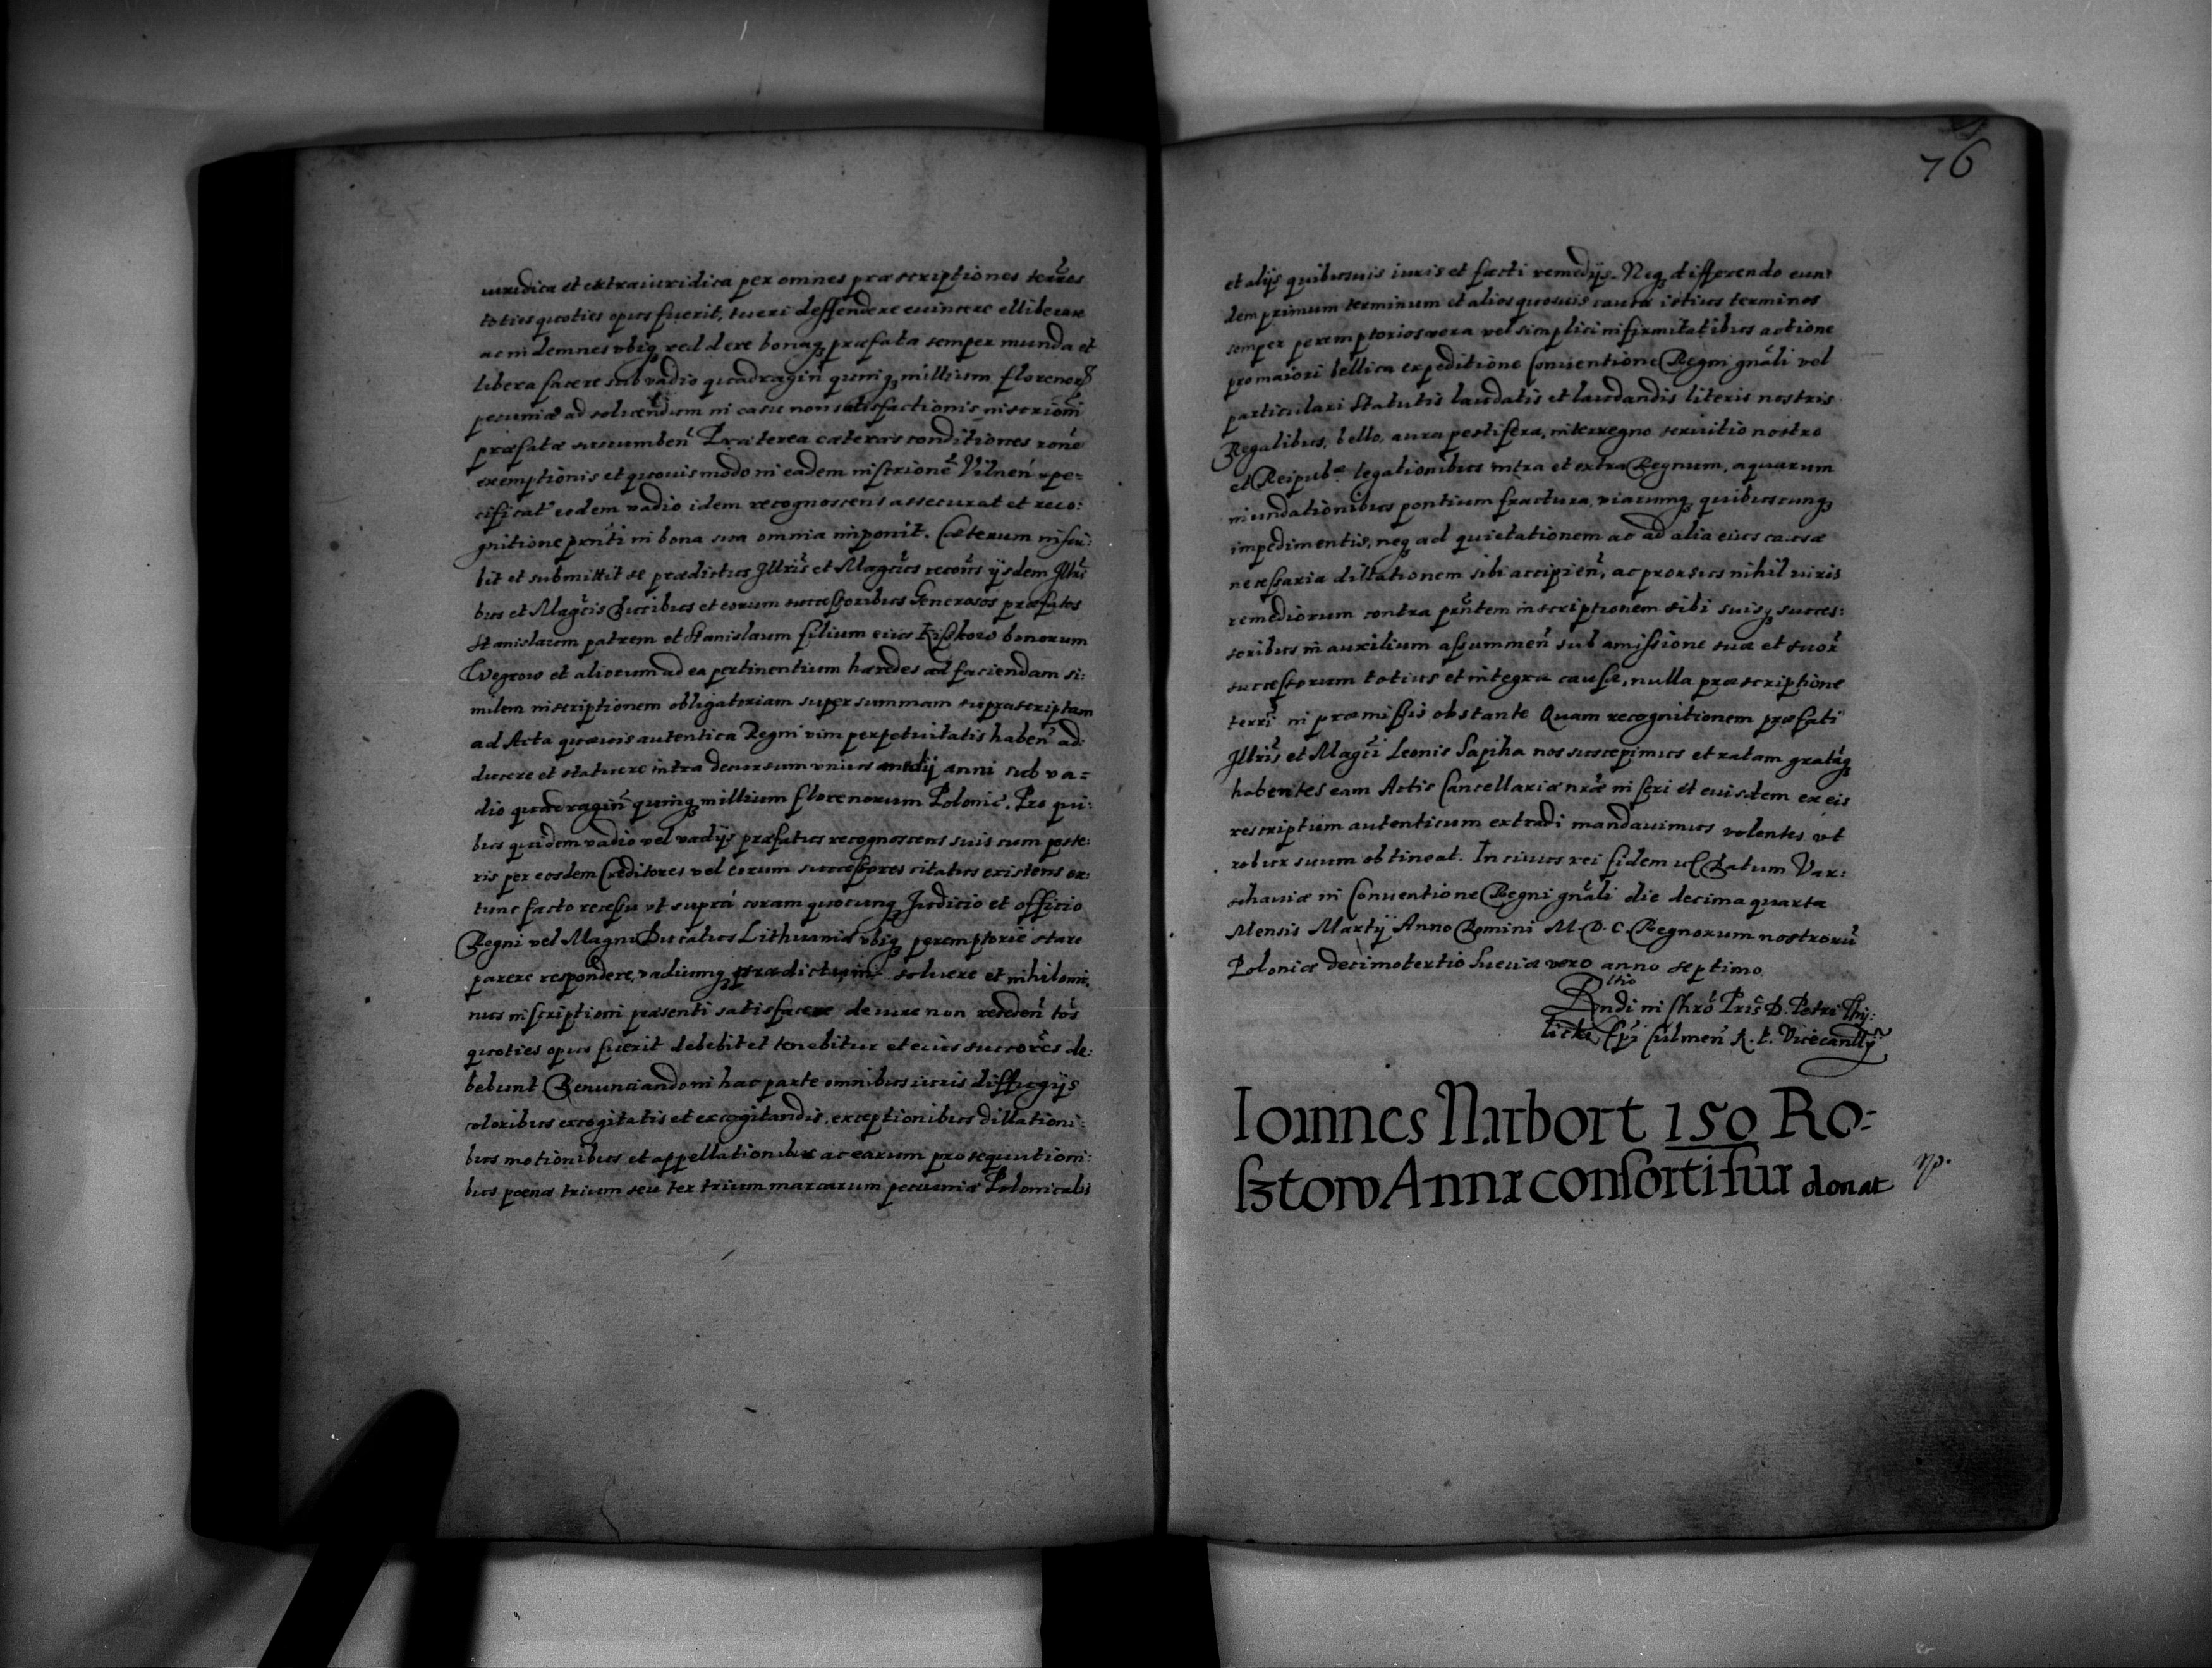 iuridica et extraiuridica per omnes præscriptiones terr̃es
toties quoties opus fuerit, tueri deffendere euincere elliberare
ac indemnes vbiq₃ reddere bonaq₃ præfata semper munda et
libera facere sub vadio quadragin quinq₃ millium florenor̃
pecuniæ ad soluendum in casu non satisfactionis inscriõni
præfatæ succumben̄ Præterea cæteras conditiones rõne
exemptionis et quouis modo in eadem inscrione Vilnen̄ spe-
cificat̄ eodem vadio idem recognoscens assecurat et reco:
gnitione pr̃nti in bona sua omnia imponit. Cæterum inscri:
bit et submittit se prædictus Jllris̃ et Magc̃us recon̄s ijsdem Jllri
bus et Magc̃is Ducibus et eorum successoribus Generosos præfatos
Stanislaum patrem et Stanislaum filium eius Kiszkow bonorum
Wegrow et aliorum ad ea pertinentium hæredes ad faciendam si:
milem inscriptionem obligatoriam super summam suprascriptam
ad Acta quæuis autentica Regni vim perpetuitatis haben̄ ad:
ducere et statuere intra decursum vnius medij anni sub va-
dio quadragin̄ quinq₃ millium florenorum Polonic̄. Pro qui:
bus quidem vadio vel vadijs præfatus recognoscens suis cum poste:
ris per eosdem Creditores vel eorum successores citatus existens ex:
tunc facto recessu vt suprà coram quocunq₃ Judicio et officio
Regni vel Magni Ducatus Lithuaniæ vbiq₃ peremptorie stare
parere respondere, vadiumq₃ prædictum soluere et nihilomi
nus inscriptioni præsenti satisfacere de iure non receden̄ tos̄
quoties opus fuerit debebit et tenebitur et eius successores de:
bebunt Renunciando in hac parte omnibus iuris diffugijs
coloribus excogitatis et excogitandis, exceptionibus dillationi:
bus motionibus et appellationibus ac earum prosequutioni:
bus poenas trium seu ter trium marcarum pecuniæ Polonicalis
76
et alijs quibusuis iuris et facti remedijs. Neq₃ differendo eun:
dem primum terminum et alios quosuis causæ istius terminos
semper peremptorios vera vel simplici infirmitatibus actione
pro maiori bellica expeditione Conuentione Regni gnãli vel
particulari Statutis laudatis et laudandis literis nostris
Regalibus, bello, aura pestifera, interregno seruitio nostro
et Reipub^æ legationibus intra et extra Regnum, aquarum
inundationibus pontium fractura, viarumq₃ quibuscunq₃
impedimentis, neq₃ ad quietationem ac ad alia eius causæ
necessaria dillationem sibi accipien̄, ac prorsus nihil iuris
remediorum contra pr̃ntem inscriptionem sibi suisq₃ succes:
soribus in auxilium assummen̄ sub amissione suæ et suor̄
successorum totius et integræ causæ, nulla præscriptione
terrĩ in præmissis obstante Quam recognitionem præfati
Jllris̃ et Magc̃i Leonis Sapiha nos suscepimus et ratam gratãq₃
habentes eam Actis Cancellariæ nr̃æ inseri et euisdem ex eis
rescriptum autenticum extradi mandauimus volentes vt
robur suum obtineat. In cuius rei fidem &c Datum Var:
schauiæ in Conuentione Regni gnãli die decima quarta
Mensis Martij Anno Domini M. D. C. Regnorum nostrorũ
Poloniæ decimotertio Sueciæ vero anno septimo
R^ltio
Rndi in Chrõ Pris̃ D. Petri Thij:
licki Ep̃i Culmen̄ R. P. Vicecancllrij
Ioannes Narbort 150 Ro-
sztow Annæ consorti suæ donat